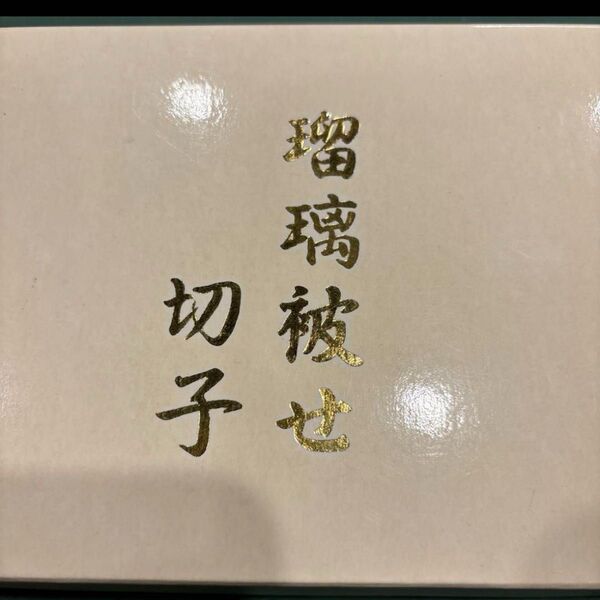 瑠璃被せ
切子